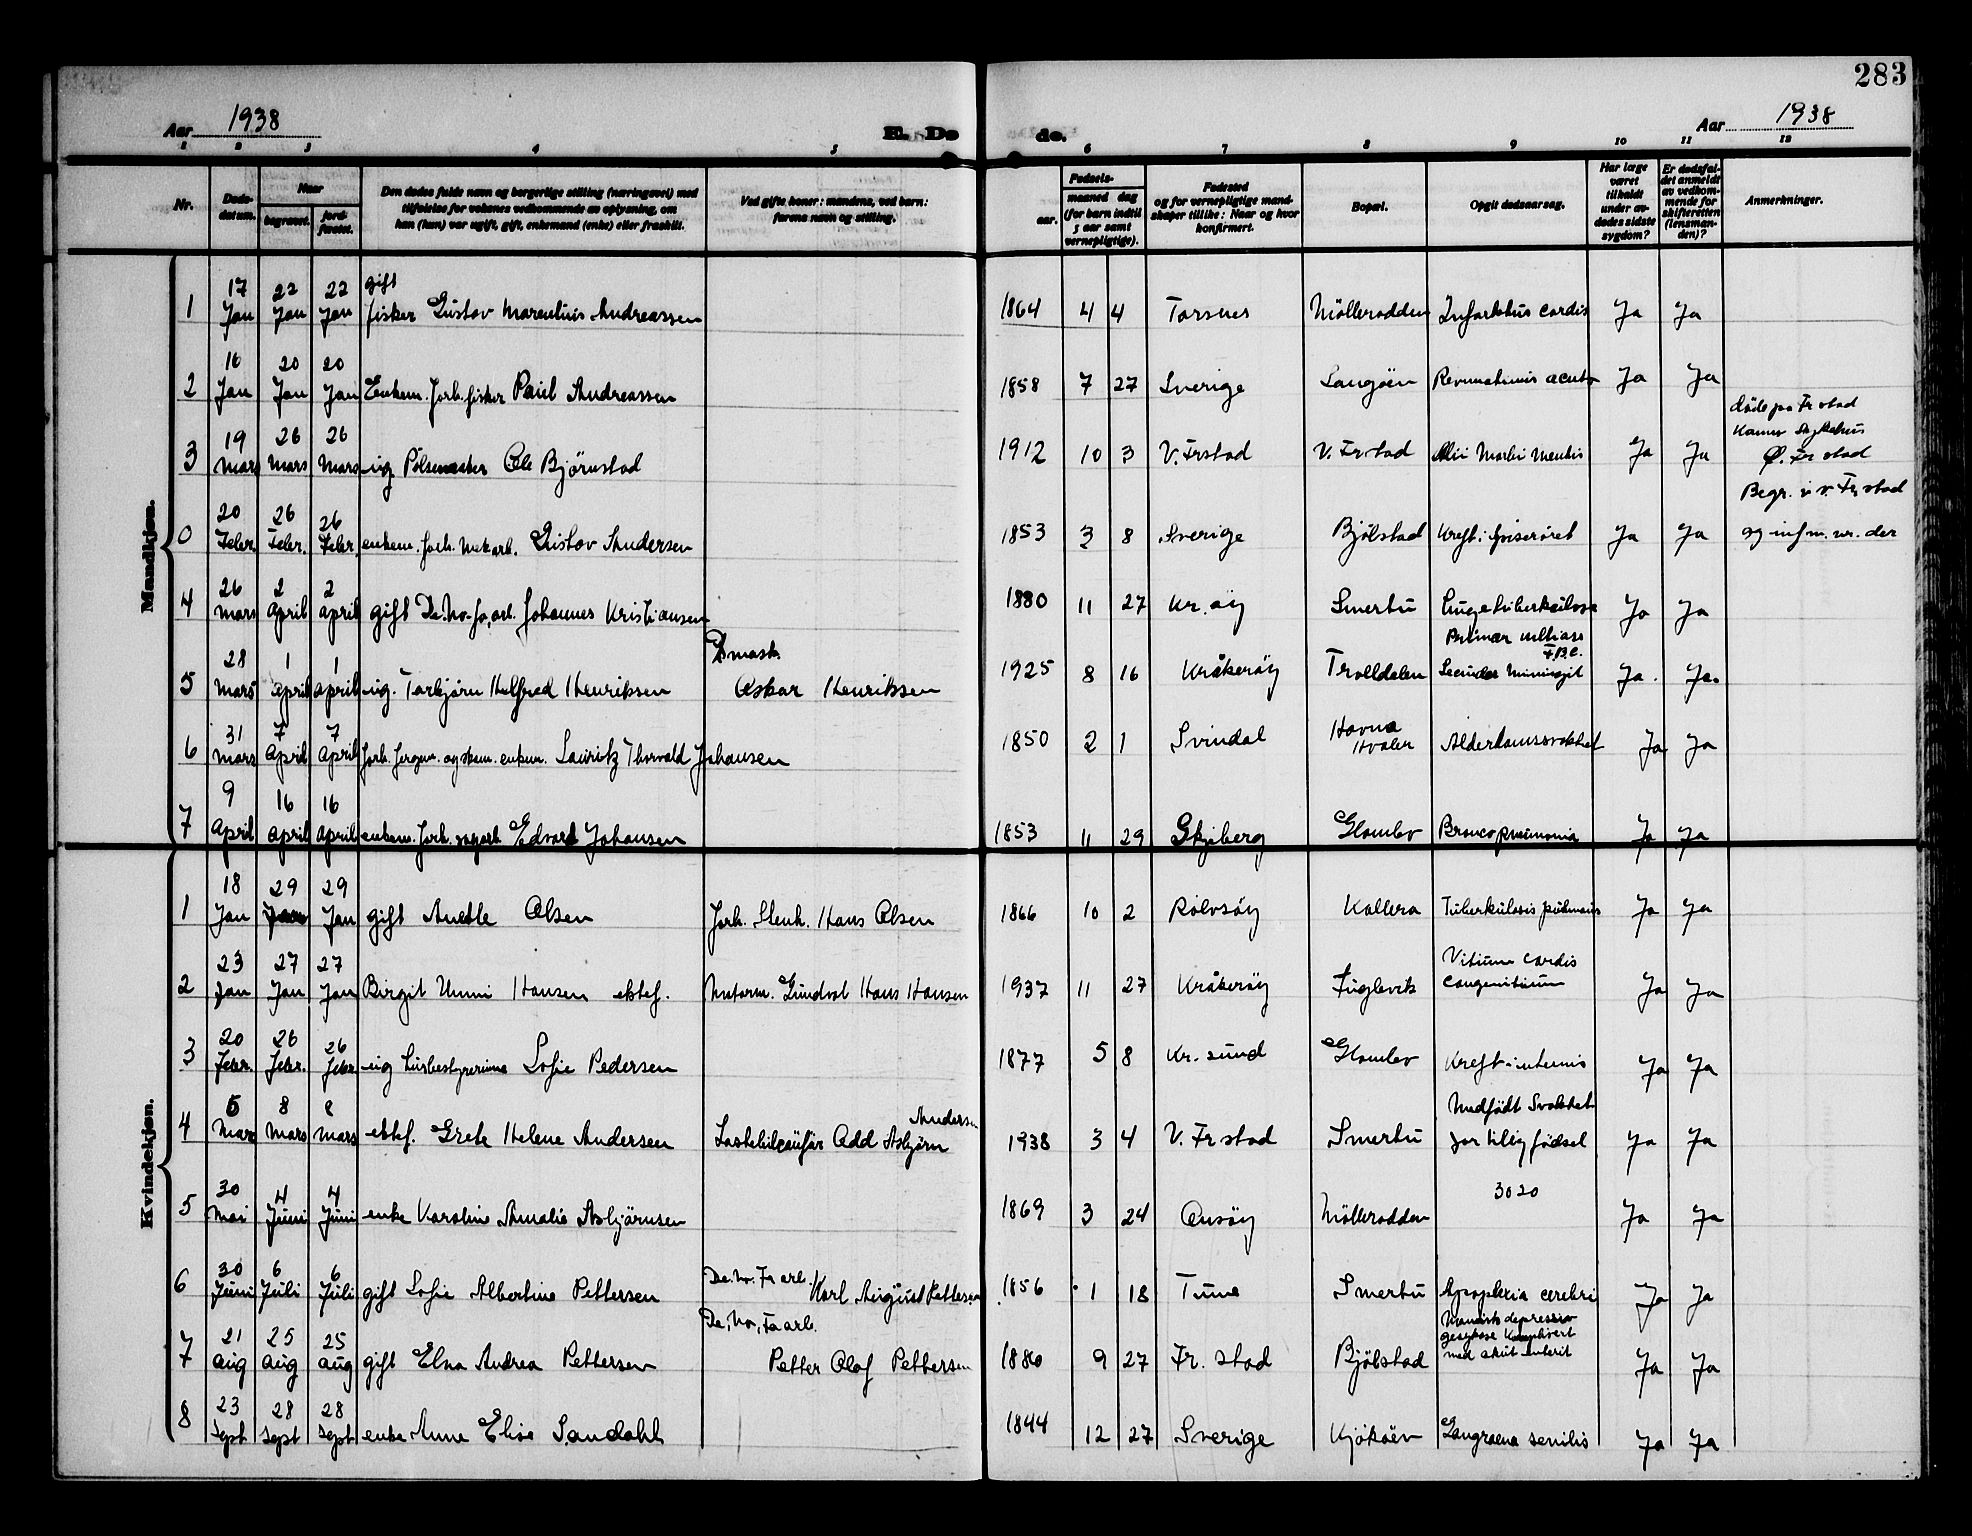 283
Aar 1938
E. Døde.
Aar 1938
1 2 3 4 5 6 7 8 9 10 11 12
Nr.
Døds-datum.
Naar
begravet.
jord-fæstet.
Den dødes fulde navn og borgerlige stilling (næringsvei) med tilføielse for voksnes vedkommende av oplysning, om han (hun) var ugift, gift, enkemand (enke) eller fraskilt.
Ved gifte koner: mandens, ved barn: farens navn og stilling.
Fødsels-
aar.
maaned dag (for barn indtil 5 aar samt vernepligtige).
Fødested og for vernepligtige mandskaper tillike: Naar og hvor konfirmert.
Bopæl.
Opgit dødsaarsag.
Har læge været tilkaldt under avdødes sidste sygdom?
Er dødsfaldet anmeldt av vedkommende for skifteretten (lensmanden)?
Anmerkninger.
Mandkjøn.
1 17 Jan 22 Jan 22 Jan gift fisker Gustav Marentius Andreassen 1864 4 4 Torsnes Møllerodden Infarktus cordis Ja Ja
2 16 Jan 20 Jan 20 Jan Enkem. forh. fisker Paul Andreassen 1858 7 27 Sverige Langøen acuta Ja Ja
3 19 Mars 26 Mars 26 Mars ug. Pølsemaker Ole Bjørnstad 1912 10 3 V. Frstad V. Frstad Ja Ja døde på Frstad Kamm Sykehus Ø. Frstad
0 20 Febr. 26 Febr. 26 Febr. enkem. forh. Gustav Andersen 1853 3 8 Sverige Bjølstad Kreft i spiserøret Ja Ja Begr. i V. Frstad og inf m. nr. der
4 26 Mars 2 April 2 April gift De.No-Fa.arb. Johannes Kristiansen 1880 11 27 Kr.øy Smertu Lungetuberkulose Ja Ja
5 28 Mars 1 April 1 April ug. Torbjørn Helfred Henriksen Oskar Henriksen 1925 8 16 Kråkerøy Trolldalen Primær T.B.C. Ja. Ja.
6 31 Mars 7 April 7 April enkem. Lauritz Thorvald Johansen 1850 2 1 Svindal Havna Hvaler Alderdomssvakhet Ja Ja
7 9 April 16 April 16 April enkem. forh. Edvard Johansen 1853 11 29 Skjeberg Glombo Broncopneumonia Ja Ja
Kvindekjøn.
1 18 Jan 29 Jan 29 Jan gift Anette Olsen forh. Stenh. Hans Olsen 1866 10 2 Rolvsøy Kallera Tuberkulosis pulmonis Ja Ja
2 23 Jan 27 Jan 27 Jan Birgit Unni Hansen ektef. Gundval Hans Hansen 1937 11 27 Kråkerøy Fuglevik Vitium cordis congenitium Ja Ja
3 20 Febr. 26 Febr. 26 Febr. ug Husbestyrerinne Sofie Pedersen 1877 5 8 Kr.sund Glombo Kreft i uterus Ja Ja
4 5 Mars 8 Mars 8 Mars ektef. Grete Helene Andersen Lastebilchaufør Odd Asbjørn Andersen 1938 3 4 V. Frstad Smertu Medfødt Svakhet for tilig fødsel Ja Ja
5 30 Mai 4 Juni 4 Juni enke Karoline Amalie Asbjørnsen 1869 3 24 Onsøy Møllerodden 3020 Ja Ja
6 30 Juni 6 Juli 6 Juli gift Sofie Albertine Pettersen De.No.Fa arb. Karl August Pettersen 1856 1 18 Tune Smertu Apoplexia cerebri Ja Ja
7 21 Aug 25 Aug 25 Aug gift Elna Andrea Pettersen De,No,Fa arb. Petter Olaf Pettersen 1880 9 27 Fr.stad Bjølstad depressiv med akut enterit Ja Ja
8 23 Sept 28 Sept 28 Sept enke Anna Elise Sandahl 1844 12 27 Sverige Kjøkøen Gangraena senilis Ja Ja